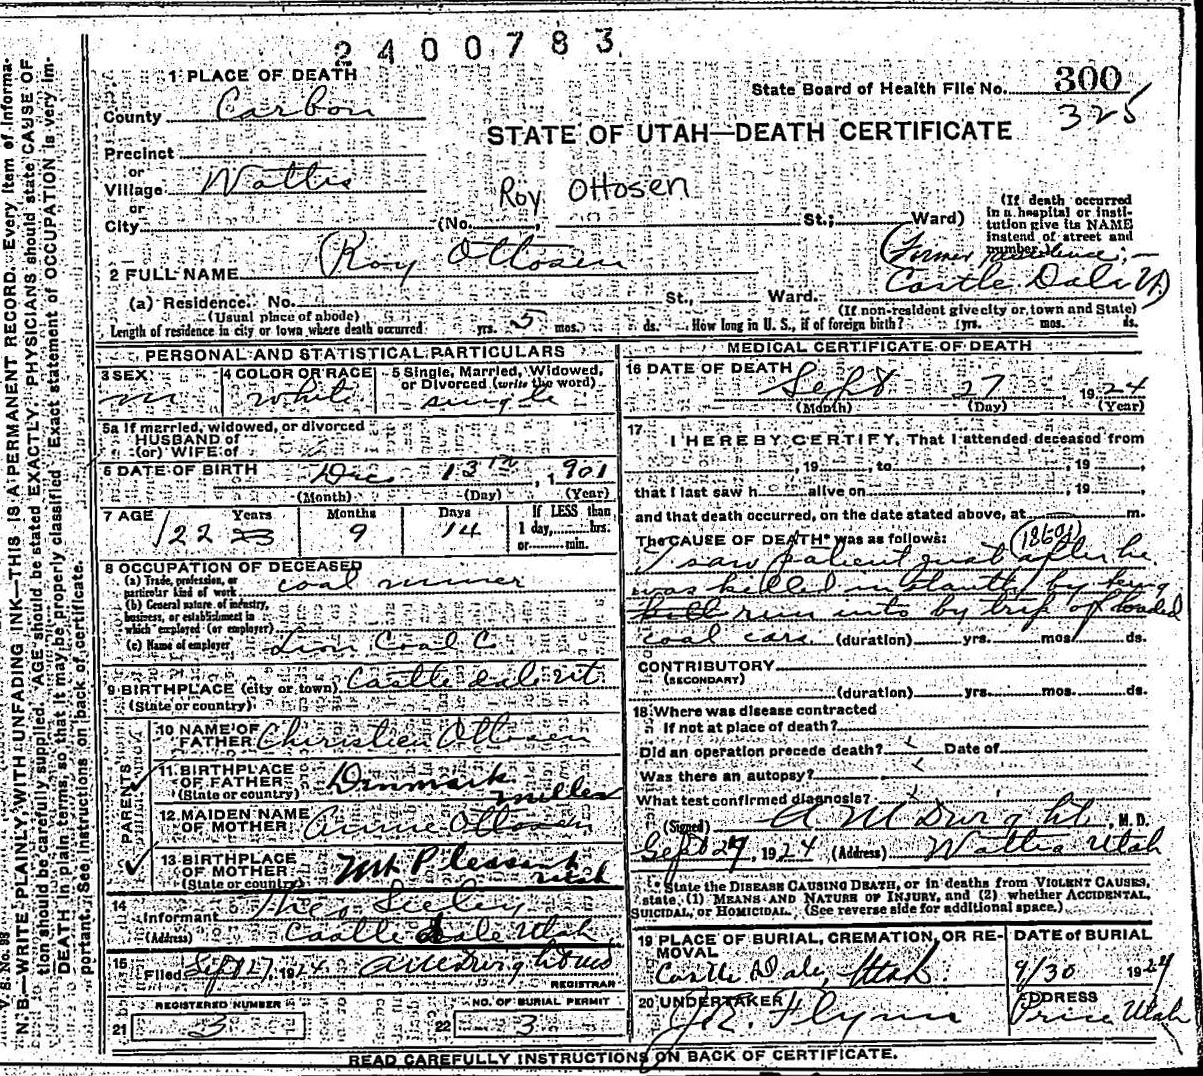 2400783
1 PLACE OF DEATH
State Board of Health File No. 300
325
County Carbon
STATE OF UTAH—DEATH CERTIFICATE
Precinct
or
Village Wattis
Roy Ottosen
or
City (No. , St.; Ward)
(If death occurred in a hospital or institution give its NAME instead of street and number.)
2 FULL NAME Roy Ottosen
(Former residence:—
Castle Dale Ut)
(a) Residence. No. St., Ward.
(Usual place of abode) (If non-resident give city or town and State)
Length of residence in city or town where death occurred yrs. 5 mos. ds. How long in U. S., if of foreign birth? yrs. mos. ds.
PERSONAL AND STATISTICAL PARTICULARS
3 SEX m
4 COLOR OR RACE white
5 Single, Married, Widowed, or Divorced (write the word) single
5a If married, widowed, or divorced
HUSBAND of
(or) WIFE of
6 DATE OF BIRTH Dec 13th, 1901
(Month) (Day) (Year)
7 AGE 22 23 Years 9 Months 14 Days
If LESS than 1 day, hrs. or min.
8 OCCUPATION OF DECEASED
(a) Trade, profession, or particular kind of work coal miner
(b) General nature of industry, business, or establishment in which employed (or employer)
(c) Name of employer Lion Coal C
9 BIRTHPLACE (city or town) Castle dale ut
(State or country)
PARENTS
10 NAME OF FATHER Christien Ottosen
11 BIRTHPLACE OF FATHER (State or country) Denmark
12 MAIDEN NAME OF MOTHER Annie Ottosen miller
13 BIRTHPLACE OF MOTHER (State or country) Mt Pleasant utah
14 Informant Theo Seeley
(Address) Castle dale Utah
15 Filed Sept 27, 1924
REGISTRAR
REGISTERED NUMBER
21 3
NO. OF BURIAL PERMIT
22 3
MEDICAL CERTIFICATE OF DEATH
16 DATE OF DEATH Sept 27 1924
(Month) (Day) (Year)
17 I HEREBY CERTIFY, That I attended deceased from
, 19 , to , 19 ,
that I last saw h alive on , 19 ,
and that death occurred, on the date stated above, at m.
The CAUSE OF DEATH* was as follows:
I saw patient just after he
was killed instantly by being
run into by trip of loaded
coal cars (duration) yrs. mos. ds.
CONTRIBUTORY
(SECONDARY)
(duration) yrs. mos. ds.
18 Where was disease contracted
If not at place of death?
Did an operation precede death? Date of
Was there an autopsy?
What test confirmed diagnosis?
(Signed) A M Dwight, M. D.
Sept 27, 1924 (Address) Wattis Utah
*State the DISEASE CAUSING DEATH, or in deaths from VIOLENT CAUSES,
state, (1) MEANS AND NATURE OF INJURY, and (2) whether ACCIDENTAL,
SUICIDAL, or HOMICIDAL. (See reverse side for additional space.)
19 PLACE OF BURIAL, CREMATION, OR REMOVAL Castle Dale, Utah
DATE of BURIAL 9/30 1924
20 UNDERTAKER J. E. Flynn
ADDRESS Price Utah
READ CAREFULLY INSTRUCTIONS ON BACK OF CERTIFICATE.
V. S. No. 98
N. B.—WRITE PLAINLY, WITH UNFADING INK—THIS IS A PERMANENT RECORD. Every item of information should be carefully supplied. AGE should be stated EXACTLY. PHYSICIANS should state CAUSE OF DEATH in plain terms, so that it may be properly classified. Exact statement of OCCUPATION is very important. See instructions on back of certificate.